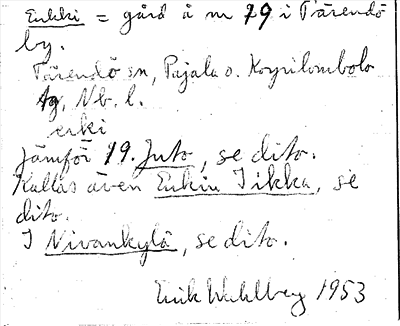 Erkki = gård å nr 79 i Tärendö
by.
Tärendö sn, Pajala o. Korpilombolo
tg, Nb. l.
erki
Jämför 19. Juto, se dito.
Kallas även Erkin Iikka, se
dito.
I Nivankylä, se dito.
Erik Wahlberg 1953